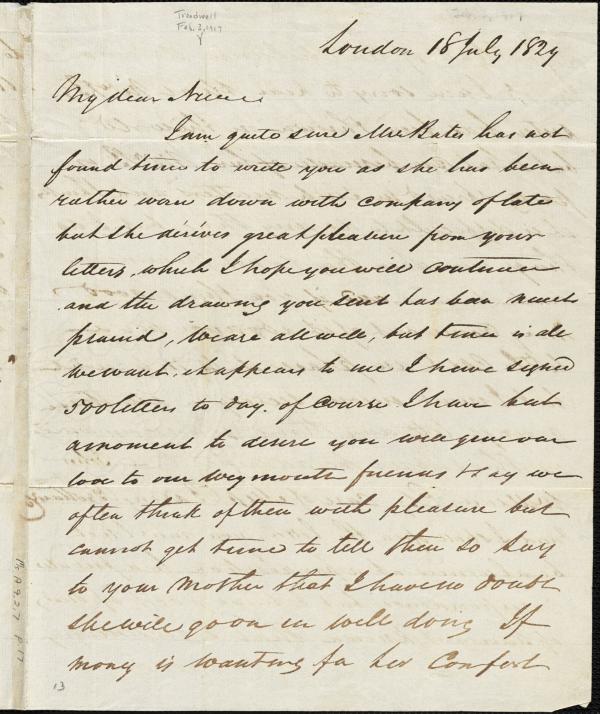 Treadwell
Feb. 2, 1917
London 18 July 1829
My dear Niece
I am quite sure Mrs Bates has not
found time to write you as she has been
rather worn down with company of late
but she derives great pleasure from your
letters, which I hope you will continue
and the drawing you sent has been much
praised, We are all well, but time is all
we want. it appears to me I have signed
500 letters to day. of course I have but
a moment to desire you will give our
love to our Weymouth friends & say we
often think of them with pleasure but
cannot get time to tell them so Say
to your Mother that I have no doubt
she will go on in well doing If
money is wanting for her Comfort
13